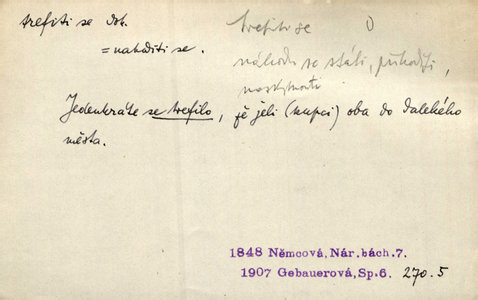 trefiti se dok.
= nahoditi se.
trefiti se
náhodou se státi, přihoditi,
naskytnouti
Jedenkráte se trefilo, že jeli (kupci) oba do dalekého
města.
1848 Němcová, Nár.bách.7.
1907 Gebauerová, Sp.6. 270.5